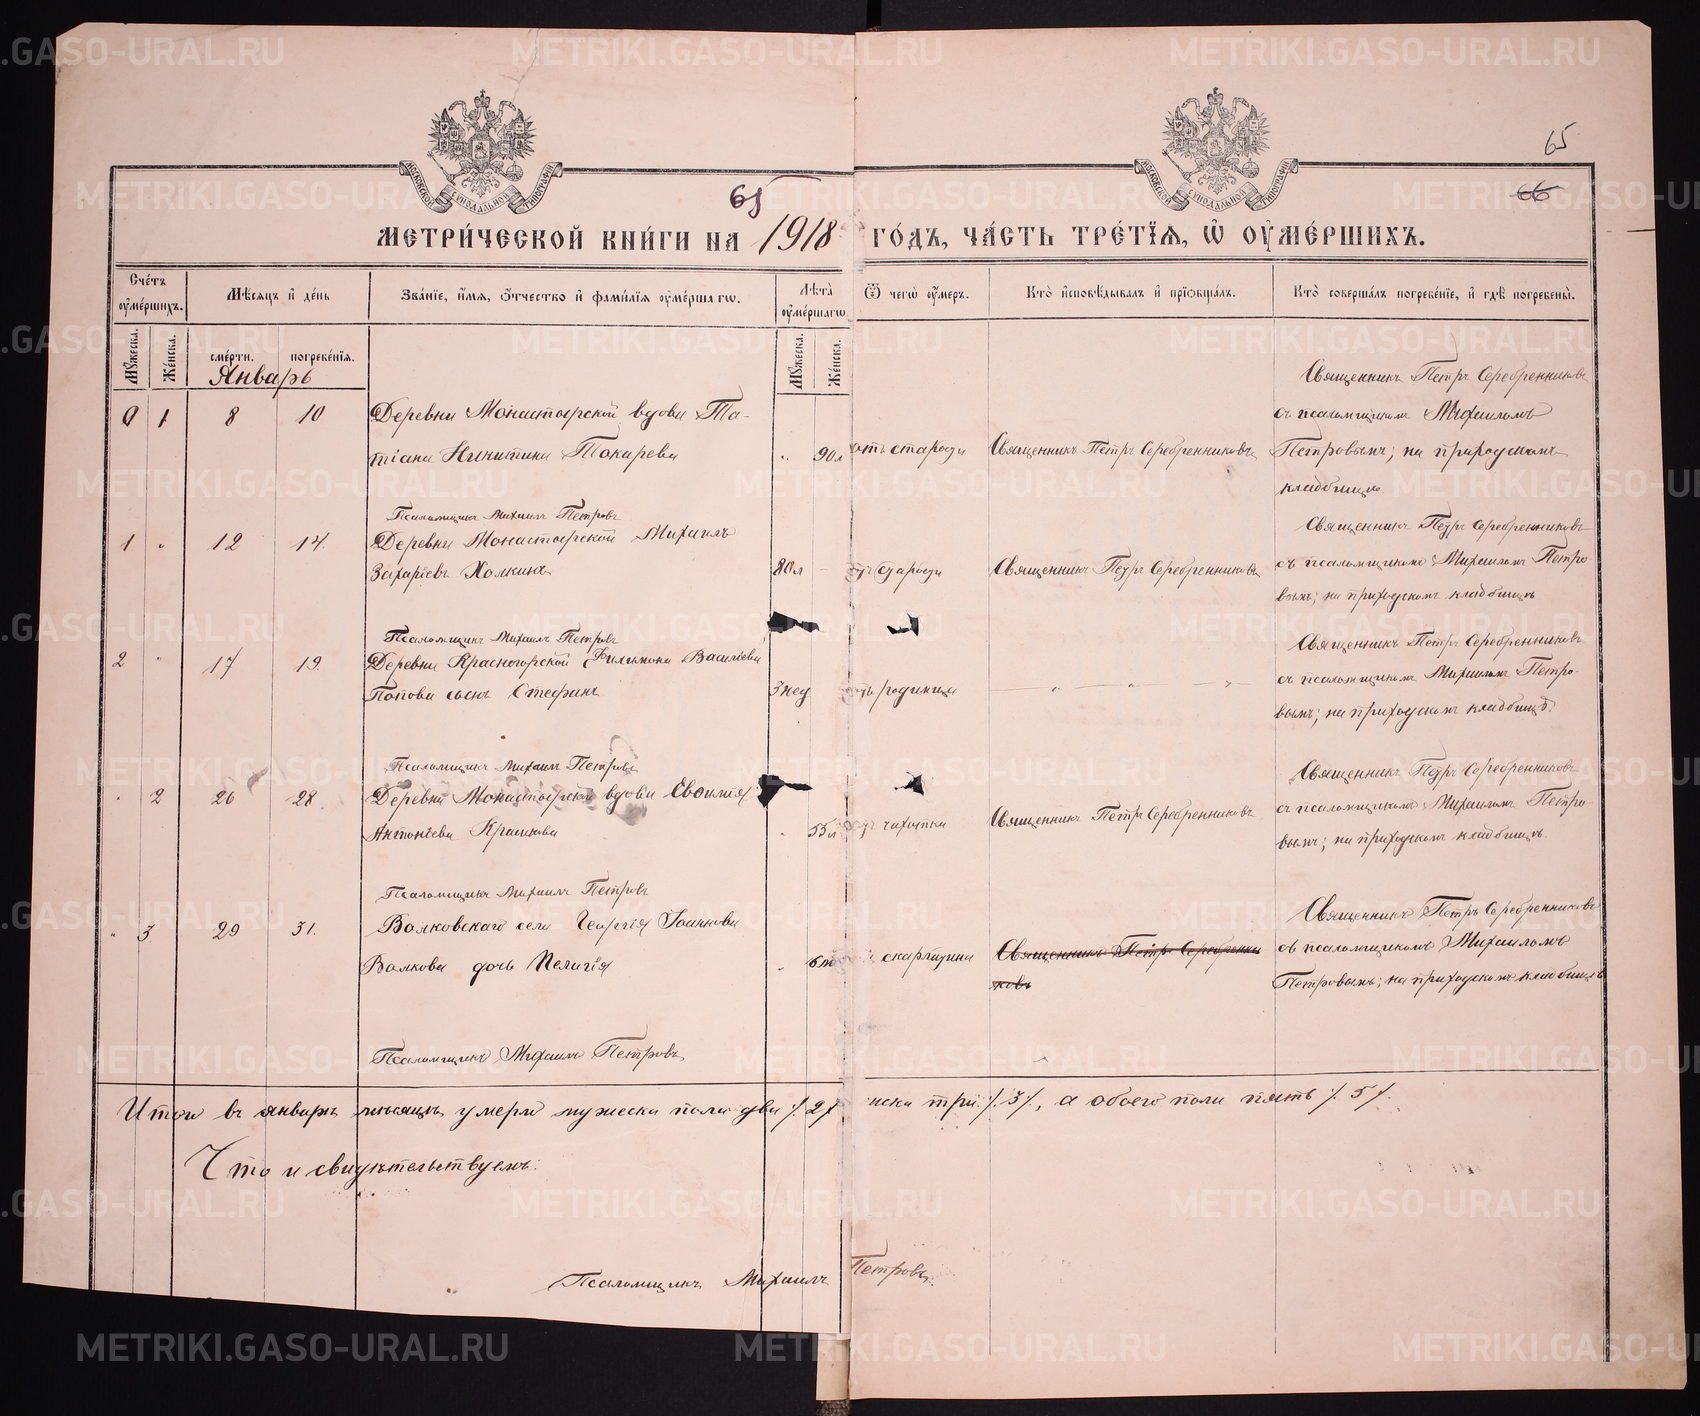 65
66
65
МЕТРИЧЕСКОЙ КНИГИ НА 1918 ГОДЪ, ЧАСТЬ ТРЕТІЯ, Ѽ ОУМЕРШИХЪ.
Счетъ оумершихъ.
Мѣсяцъ и день
Званіе, имя, отчество и фамилія оумершагѡ.
Лѣта оумершагѡ
Ѿ чегѡ оумеръ.
Кто исповѣдывалъ и пріобщалъ.
Кто совершалъ погребеніе, и гдѣ погребены.
Мꙋжеска.
Женска.
смерти.
погребенія.
Мꙋжеска.
Женска.
Январь
0 1 8 10 Деревни Монастырской вдова Та-
тіана Никитина Токарева
90 л
отъ старости
Священникъ Петръ Серебренниковъ
Священникъ Петръ Серебренниковъ
съ псаломщикомъ Михаиломъ
Петровымъ; на приходскомъ
кладбищѣ
Псаломщикъ Михаилъ Петровъ
1 " 12 14. Деревни Монастырской Михаилъ
Захаріевъ Холкинъ
80 л
отъ старости
Священникъ Петръ Серебренниковъ
Священникъ Петръ Серебренниковъ
съ псаломщикомъ Михаиломъ Петро
вымъ; на приходскомъ кладбищѣ
Псаломщикъ Михаилъ Петровъ
2 " 17 19. Деревни Красногорской Филимона Васильева
Попова сынъ Стефанъ
3 нед
отъ родимца
" " "
Священникъ Петръ Серебренниковъ
съ псаломщикомъ Михаиломъ Петро
вымъ; на приходскомъ кладбищѣ.
Псаломщикъ Михаилъ Петровъ
" 2 26 28. Деревни Монастырской вдова Евдокія
Антоніева
" 55 л
отъ чахотки
Священникъ Петръ Серебренниковъ
Священникъ Петръ Серебренниковъ
съ псаломщикомъ Михаиломъ Петро
вымъ; на приходскомъ кладбищѣ.
Псаломщикъ Михаилъ Петровъ
" 3 29 31. Волковскаго села Георгія Іоаннова
Волкова дочь Пелагія
" 6 м
скарлатина
Священникъ Петръ Серебренни
ковъ
Священникъ Петръ Серебренниковъ
съ псаломщикомъ Михаиломъ
Петровымъ; на приходскомъ кладбищѣ
Псаломщикъ Михаилъ Петровъ
Итого въ январѣ мѣсяцѣ умерло мужеска пола два /. 2 /. нска три /. 3 /., а обоего пола пять /. 5 /.
Что и свидѣтельствуемъ:
Псаломщикъ Михаилъ Петровъ.
METRIKI.GASO-URAL.RU